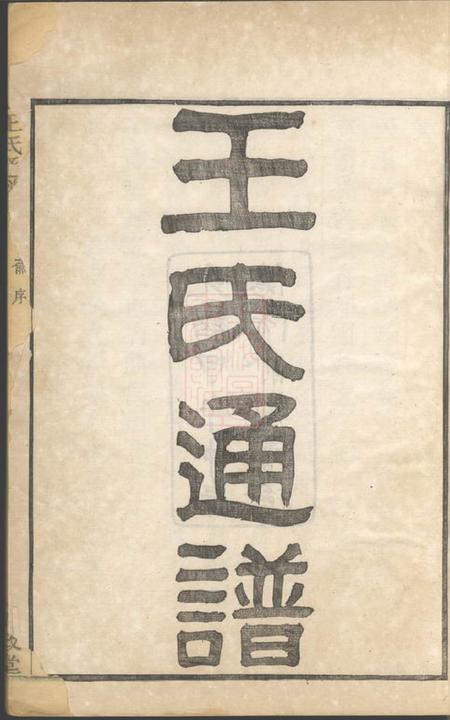 王氏通譜
王氏
舊序
堂